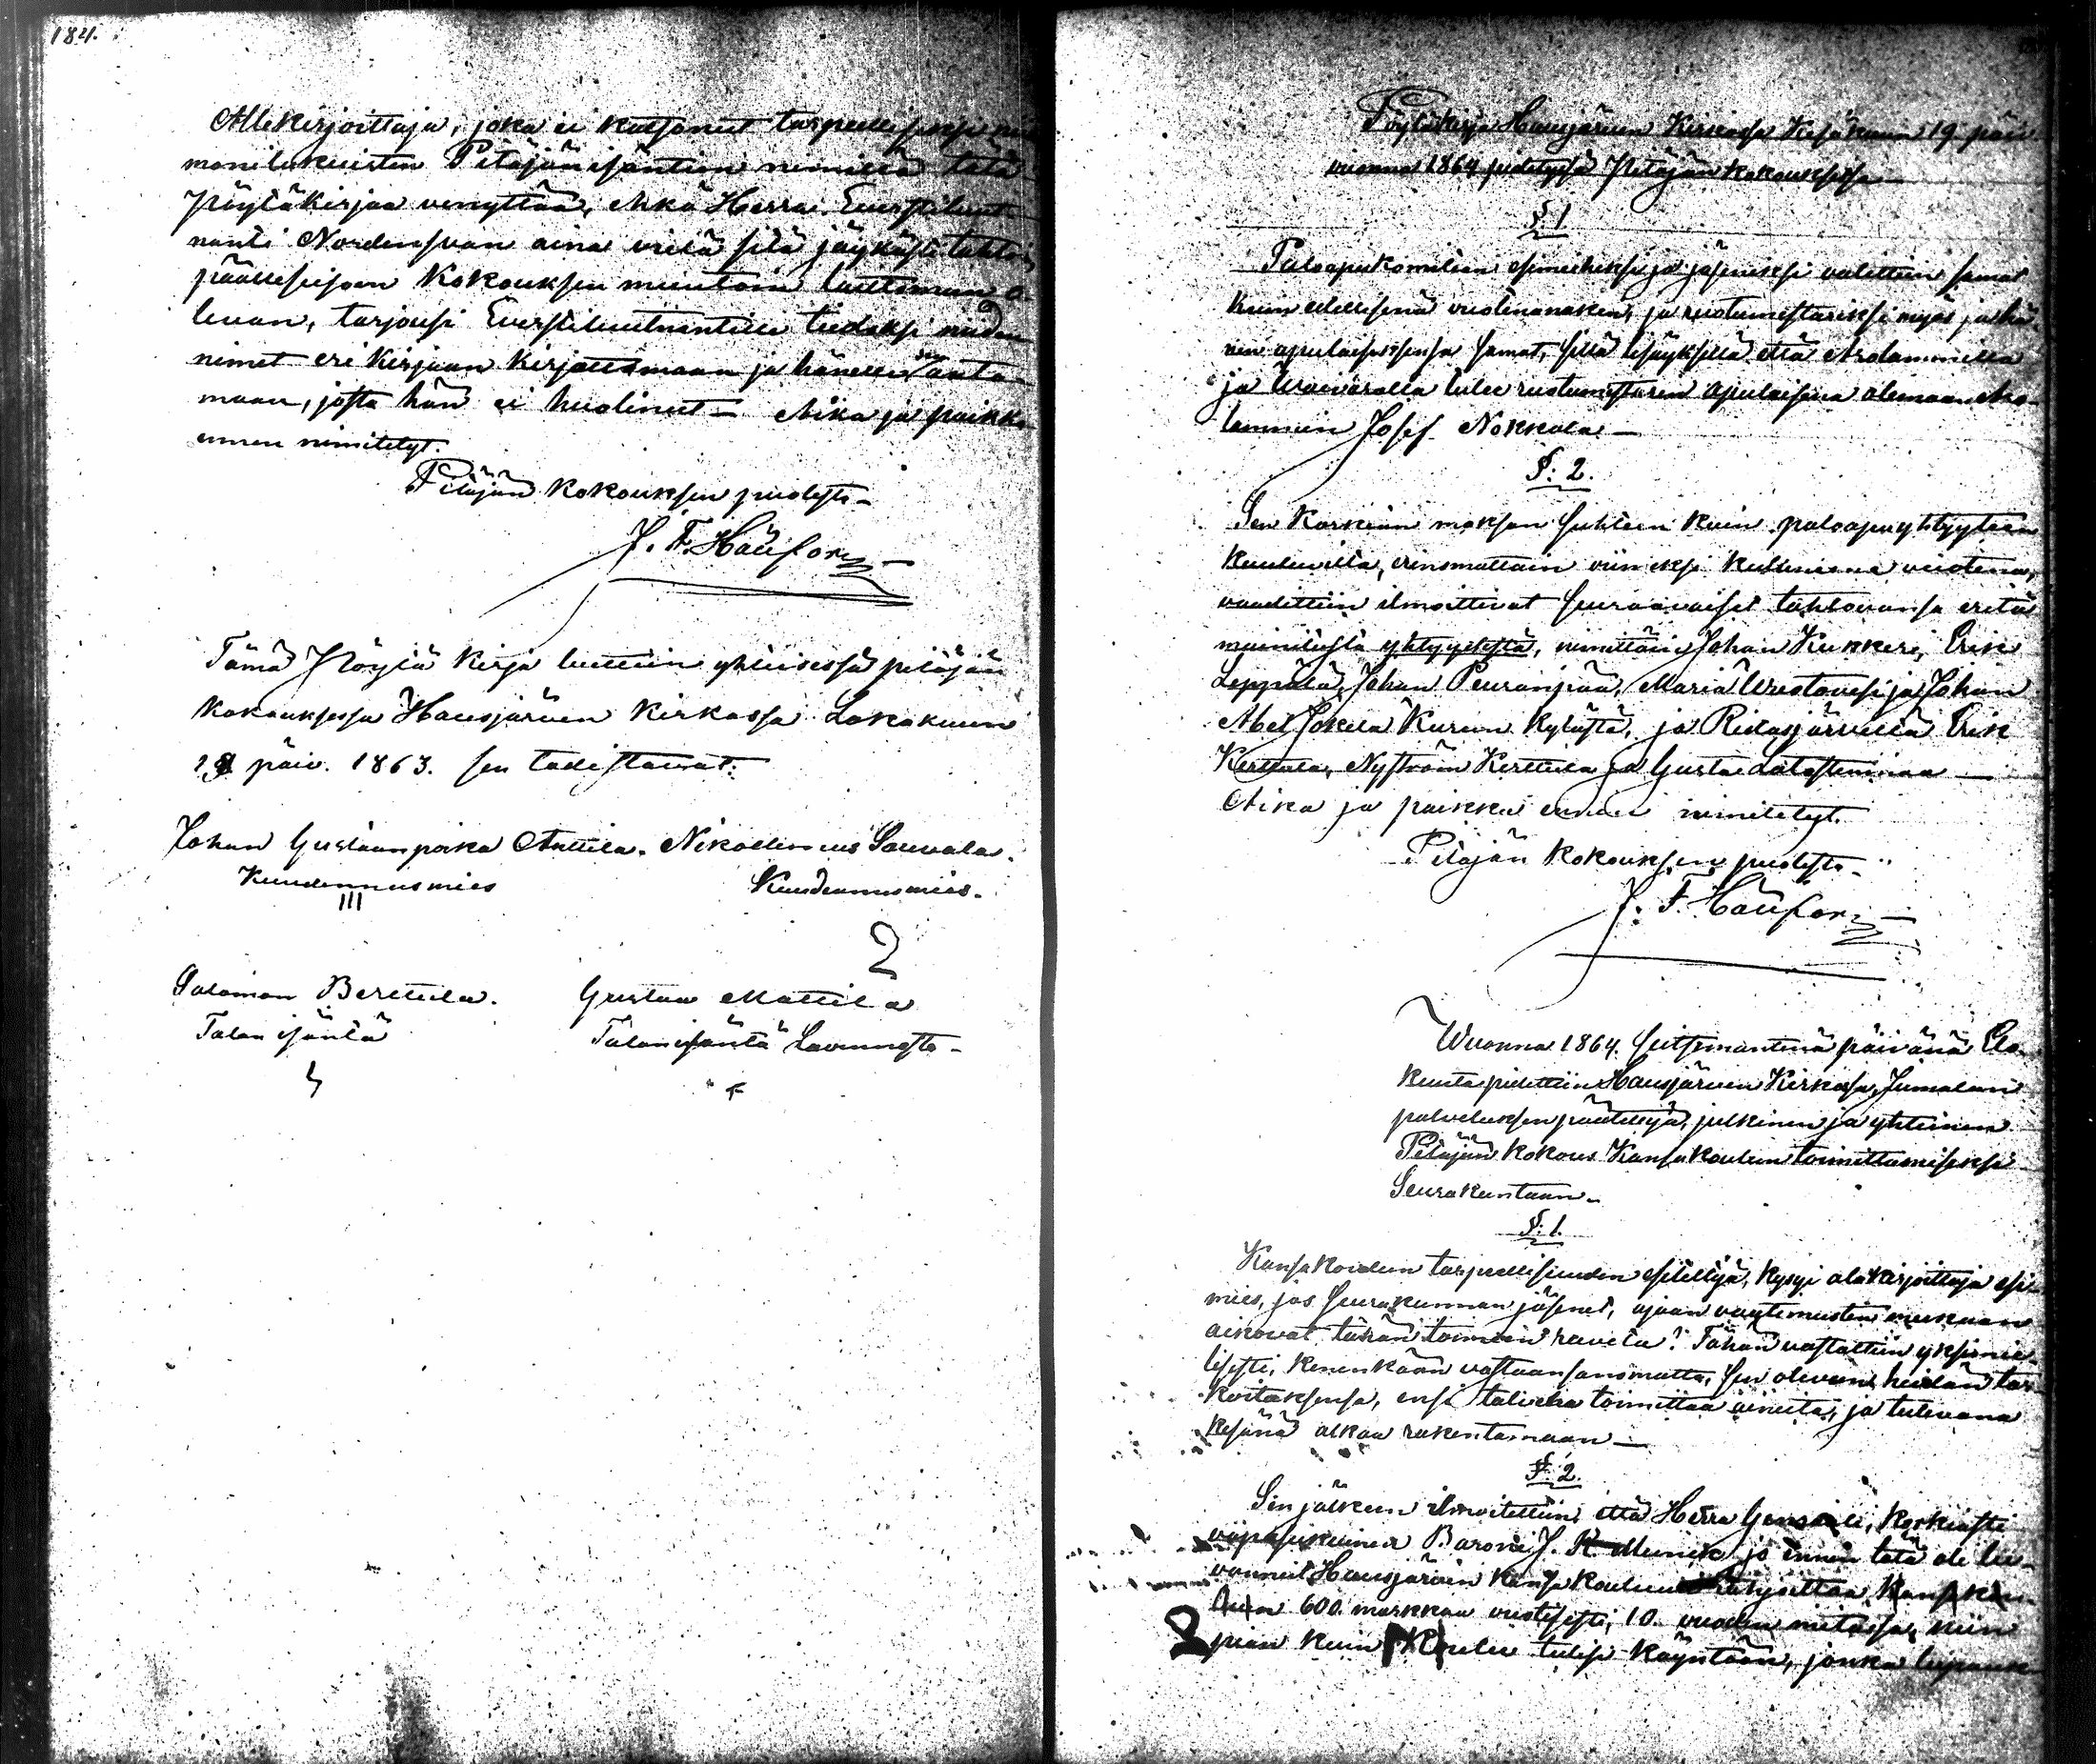 184.
Allekirjoittaja, joka ei katsonut tarpeelliseksi
monilukuisten Pitäjänisäntien nimillä tätä
Pöytäkirjaa venyttää, ehkä Herra Everstiluut-
nanti Nordensvan aina vielä sitä jäykästi tahtoi
päälleseisoen Kokouksen muutoin laittoman o-
levan, tarjousi Everstiluutnantille tiedoksi niiden
nimet eri kirjaan kirjoittamaan ja hänelle anta-
maan, josta hän ei huolinut — Aika ja paikka
ennen nimitetyt.
Pitäjän kokouksen puolesta —
J. F. Häufor
Tämä Pöytä kirja luettiin yhteisessä pitäjän
kokouksessa Hausjärven kirkossa Lokakuun
päiv. 1863. sen todistavat:
Johan Gustaanpoika Anttila. Nikodemus Sauvala.
Kuudennusmies Kuudennusmies.
III
2
Salomon Berttula. Gustaa Mattila
Talan isäntä Talonisäntä Lavinnosta —
Pöytäkirja Hausjärven Kirkossa Kesäkuun 19 päiv.
vuonna 1864 pidetyssä Pitäjän kokouksessa —
§ 1
Paloapukomitean esimieheksi ja jäseniksi valittiin samat
kuin edellisenä vuotenanakin, ja ruotumestariksi myös ja hä-
nen apulaiseksensa samat, sillä lisäyksellä että Arolammilla
ja tulee ruotumestarin apulaisena olemaan Aro-
lammin Josef Nokkala —
§: 2.
Sen korkian makson suhteen kuin paloapuyhtyyteen
kuuluvilta, erinomattain viimeksi kuluneena vuotena,
vaadittiin ilmoittivat seuraavaiset tahtovansa eritä
mainitusta yhtyydestä, nimittäin Johan Kukkeri, Erik
Leppälä, Johan Peuranpää, Maria Wuotavesi ja Johan
Abel Jokela Kurun kylästä, ja Ridasjärveltä Erik
Kerttula, Nyström Kerttula ja Gustaa Latostenmaa —
Aika ja paikka ennen nimitetyt.
Pitäjän Kokouksen puolesta —
J. F. Häufor
Wuonna 1864. seitsemäntenä päivänä Elo-
kuuta pidettiin Hausjärven Kirkossa, Jumalan
palveluksen päätettyä, julkinen ja yhteinen
Pitäjän kokous Kansakoulun toimittamiseksi
Seurakuntaan.
§: 1.
Kansakoulun tarpeellisuuden esiteltyä, kysyi alakirjoittaja esi-
mies, jos Seurakunnan jäsenet, ajaan vaatimusten mukaan
aikovat tähän toimeen ruveta? Tähän vastattiin yksimie-
lisesti, kenenkään vastaansanomatta, sen olevan heidän tar-
koitaksensa, ensi talvelta toimittaa aineita, ja tulevana
kesänä alkaa rakentamaan —
§: 2.
Sen jälkeen ilmoitettiin että Herra Generali, korkiasti
vapasukuinen Baroni J. R. Munck jo ennen tätä oli lu-
vannut Hausjärven kansakouluun
600 markkaa vuotisesti, 10 vuoden mitassa, niin
pian kuin Koulu tulisi käyntään, jonka lupauk-